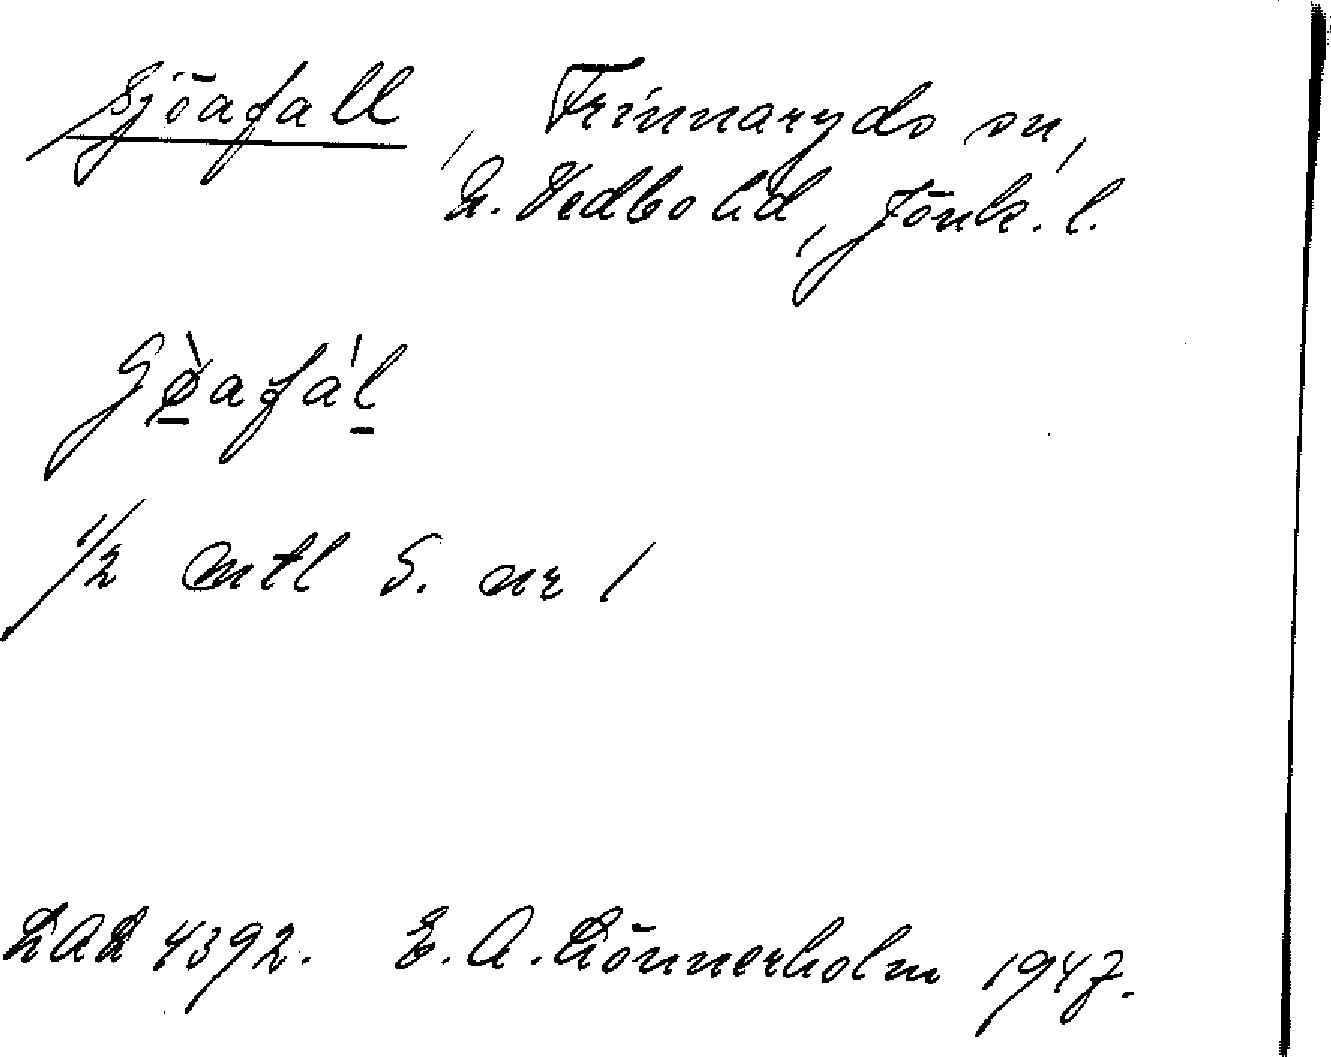 Sjöafall, Frinnaryds sn,
N. Vedbo hd, Jönk. l.
Sø̀afál
1/2 mtl S. nr 1
LAL 4392. E. A. Lönnerholm 1947.